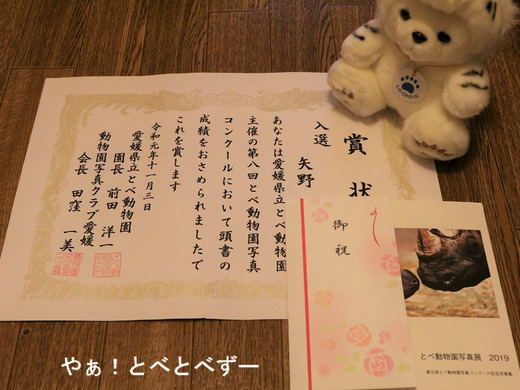 賞状
入選 矢野
あなたは愛媛県立とべ動物園
主催の第八回とべ動物園写真
コンクールにおいて頭書の
成績をおさめられましたで
これを賞します
令和元年十一月三日
愛媛県立とべ動物園
園長 前田 洋一
動物園写真クラブ愛媛
会長 田窪 一美
御祝
とべ動物園写真展 2019
第８回とべ動物園写真コンクール記念写真集
やぁ！とべとべずー